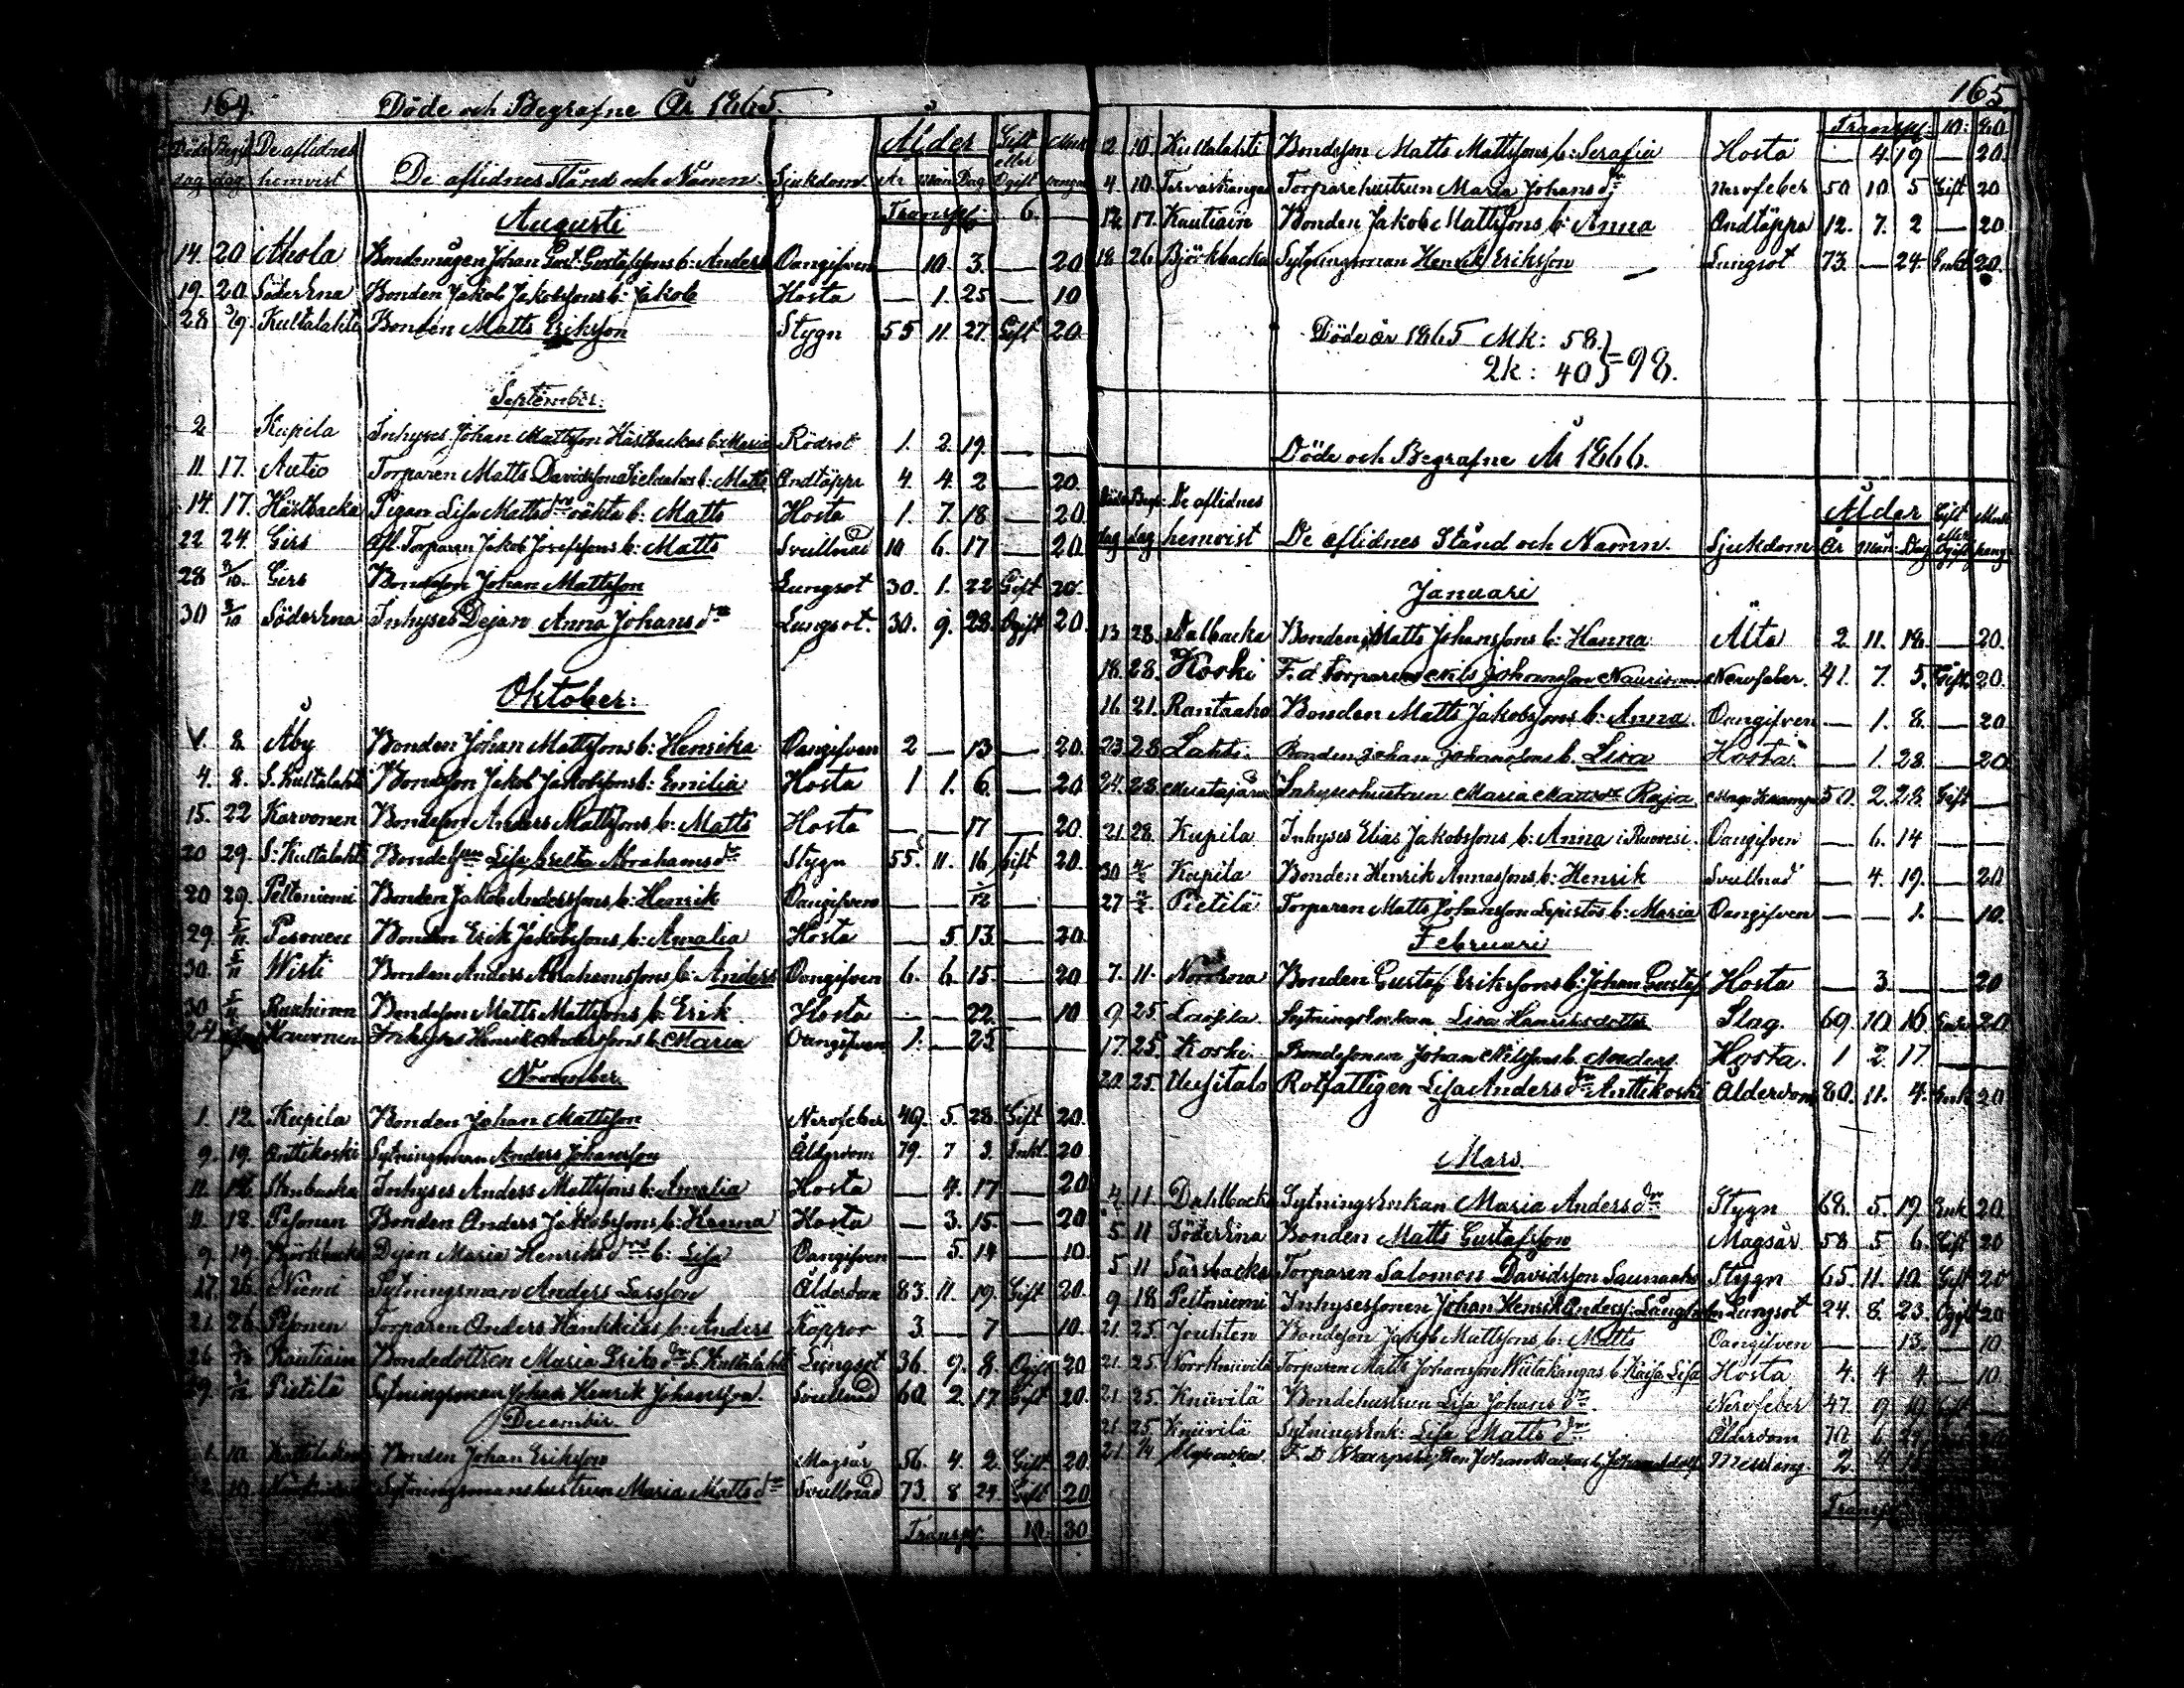 164. Döde och Begrafne År 1865.
Döde Begr. De aflidnes Ålder Gift eller Mull
dag dag hemvist De aflidnes Stånd och Namn. Sjukdom År Mån Dag Ogift penga
Augusti Transp: 6. —
14. 20 Ahola Bondemågen Johan Gust. Gustafssons b: Anders Oangifven — 10 3. — 20
19. 20 SöderEna Bonden Jakob Jakobssons b: Jakob Hosta — 1. 25 — 10
28 3/9. Kultalahti Bonden Matts Eriksson Stygn 55 11. 27. Gift 20.
September:
2 Kupila Inhyses Johan Mattsson Hästbackas b: Maria Rödsot 1. 2. 19. — —
11. 17. Autio Torparen Matts Davidsson b: Matts Andtäppa 4. 4. 2 — 20.
14. 17. Hästbacka Pigan Lisa Matts dre oäkta b: Matts Hosta 1. 7. 18 — 20.
22 24. Girs Afl. Torparen Jakob Josefssons b: Matts Svullnad 10 6. 17 — 20.
28 Girs Bondeson Johan Mattsson Lungsot 30. 1. 22 Gift 20.
30 SöderEna Inhyses Dejan Anna Johans dr Lungsot. 30. 9. 28. Ogift 20.
Oktober:
1. 8. Åby Bonden Johan Mattssons b: Henrika Oangifven 2 — 13 — 20.
4. 8. S. Kultalahti Bondeson Jakob Jakobssons b: Emilia Hosta 1 1. 6. — 20
15. 22 Karvonen Bondeson Anders Mattssons b: Matts Hosta — — 17 — 20.
20 29. S. Kultalahti Lisa Greta Abrahams dr Stygn 55. 11. 16. Gift 20.
20 29. Peltoniemi Bonden Jakob Anderssons b: Henrik Oangifven — — 1/12 —
29. 5/11 Pesonen Bonden Erik Jakobssons b: Amalia Hosta — 5 13. — 20
30. 5/11 Wisti Bonden Anders Abrahamssons b: Anders Oangifven 6. 6. 15. — 20
30 5/11 Bondeson Matts Mattssons b: Erik Hosta — — 22 — 10
24 Inhyses Henrik Anderssons b: Maria Oangifven 1. — 25 —
November.
1. 12. Kupila Bonden Johan Mattsson Nervfeber 49. 5. 28. Gift 20.
9. 19. Anttikoski Sytningsman Anders Johansson Ålderdom 79. 7 3. Enkl. 20
11. Stenbacka Inhyses Anders Mattssons b: Amalia Hosta — 4. 17 — 20
11. 12. Pesonen Bonden Anders Jakobssons b: Hanna Hosta — 3. 15. — 20
9. 19. Björkbacka Dejan Maria Henriks dres b: Lisa Oangifven — 5. 14 — 10.
17. 26. Niemi Sytningsman Anders Larsson Ålderdom 83. 11. 19. Gift 20.
21. 26. Pesonen Torparen Anders b: Anders Koppor 3. — 7 — 10.
26 Kautiain Bondedottren Maria Eriks dr S. Kultalahti Lungsot 36. 9. 8. Ogift 20
29. Pietilä Sytningsman Johan Henrik Johansson. Svullnad 60. 2. 17. Gift 20.
December.
1. 10. Bonden Johan Eriksson Magsår 56. 4. 2. Gift 20.
10. Sytningsmanshustrun Maria Matts dr Svullnad 73. 8 24. Gift 20
Transp. 10. 30.
165
Transp: 10: 80
2 10. Kultalahti Bondeson Matts Mattssons b: Serafia Hosta — 4. 19 — 20.
4. 10. Tervaskangas Torparehustrun Maria Johans dr Nervfeber 50 10. 5 Gift 20
12. 17. Kautiain Bonden Jakob Mattssons b: Anna Andtäppa 12. 7. 2 — 20
18. 26. Björkbacka Sytningsman Henrik Eriksson Lungsot 73. — 24. Enkl 20.
Döde år 1865 Mk: 58.
Qk: 40 } = 98.
Döde och Begrafne År 1866.
Döde Begr. De aflidnes Ålder Gift eller Mull
dag dag hemvist De aflidnes Stånd och Namn. Sjukdom År Mån: Dag Ogift peng
Januari
13 28. Dalbacka Bonden Matts Johanssons b: Hanna Älta 2. 11. 18. — 20.
18. 28. Koski F. d. Torparen Nils Johansson Nervfeber. 41. 7. 5. Gift. 20.
16 21. Rantaaho Bonden Matts Jakobssons b: Anna. Oangifven — 1. 8. — 20
23. 28 Lahti. Bonden Johan Johanssons b. Lisa Hosta — 1. 28. — 20
24. 28. Inhyseshustrun Maria Matts dr Raja 50. 2. 28. Gift —
21 28. Kupila Inhyses Elias Jakobssons b: Anna i Ruovesi. Oangifven — 6. 14 — —
30 Kupila Bonden Henrik Annassons b: Henrik Svullnad — 4. 19. — 20
27 Pietilä Torparen Matts Johansson Lepistös b: Maria Oangifven — — 1. — 10.
Februari
7. 11. NorrEna Bonden Gustaf Erikssons b: Johan Gustaf Hosta — 3. — — 20
9 25. Laxila. SytningsEnkan Lisa Henriksdotter Slag. 69. 10. 16 Enk. 20
17. 25. Koski. Bondesonen Johan Nilssons b. Anders. Hosta. 1 2. 17. —
20. 25. Uusitalo Rotfattigen Lisa Anders dr Anttikoski Ålderdom 80. 11. 4. Enk. 20
Mars.
4. 11. Dahlbacka SytningsEnkan Maria Anders dr Stygn 68. 5. 19. Enk. 20.
5. 11 SöderEna Bonden Matts Gustafsson Magsår 58 5 6. Gift 20
5 11 Särsbacka Torparen Salomon Davidsson Saunaaho Stygn 65. 11. 10. Gift 20
9 18 Peltoniemi Inhysessonen Johan Henrik Anderss: Långholm Lungsot 24. 8. 23. Ogift 20
21. 25. Jouhten Bondeson Jakob Mattssons b: Matts Oangifven — — 13. — 10.
21. 25. NorrKniivilä Torparen Matts Johansson Wiitakangas b: Kaisa Lisa Hosta 4. 4 4. — 10.
21. 25. Kniivilä Bondehustrun Lisa Johans dr. Nervfeber 47. 9. 19. Gift —
21. 25. Kniivilä SytningsEnk: Lisa Matts dr Ålderdom
21. Messling. 2
Transp.